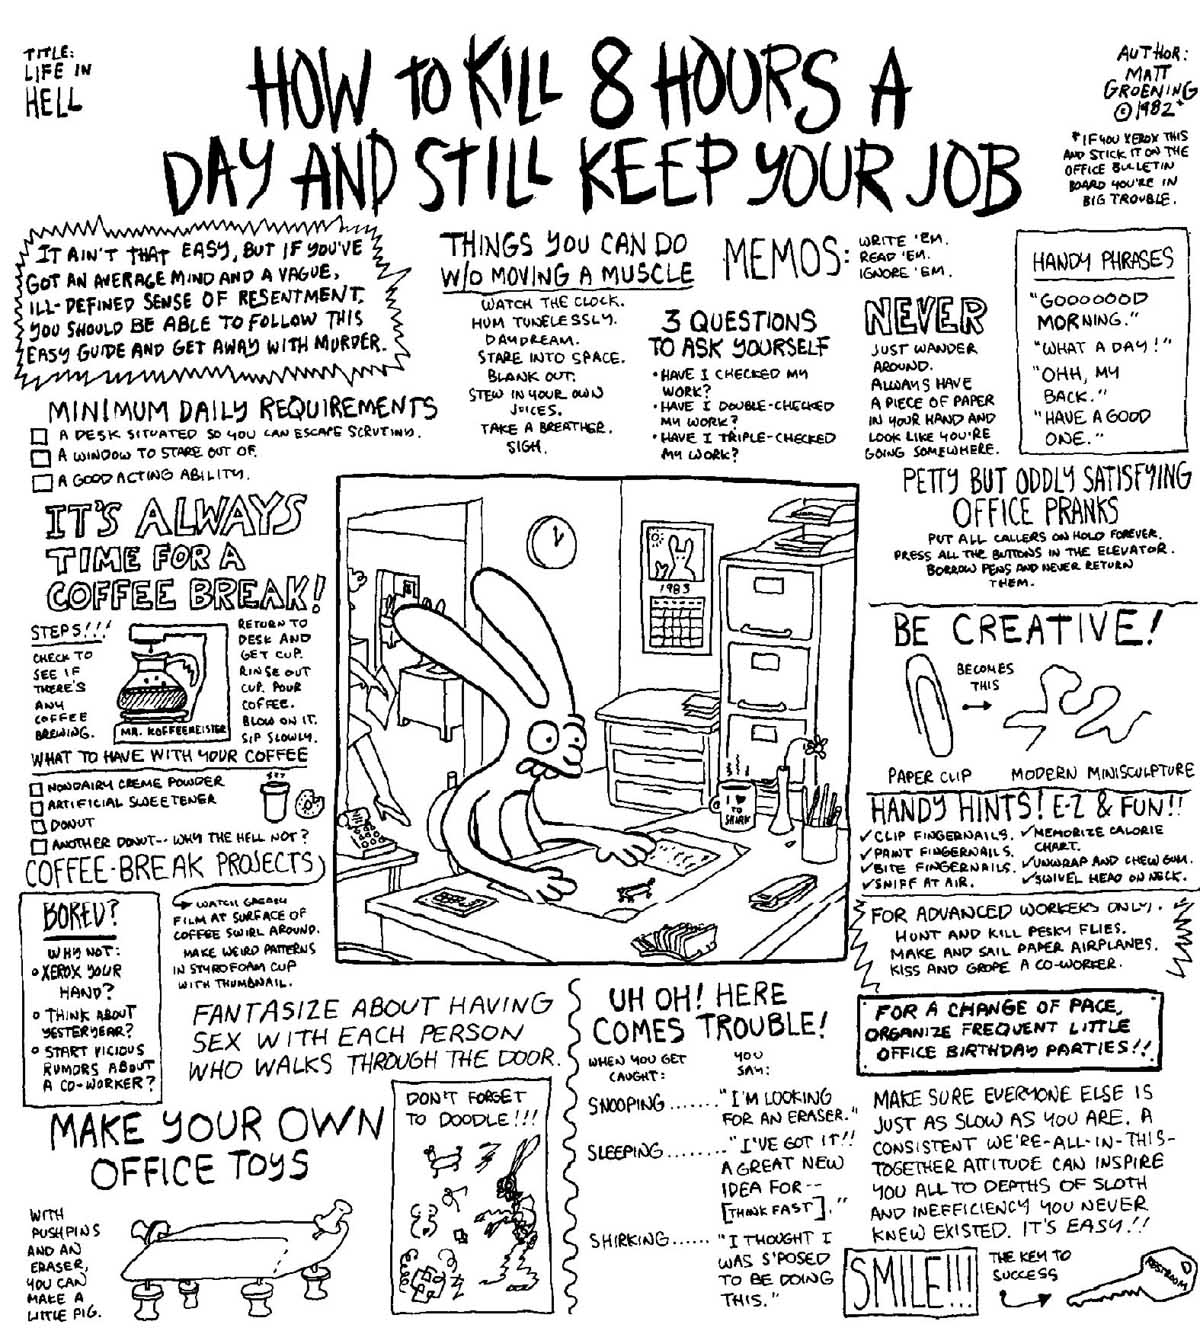 TITLE:
LIFE IN
HELL
HOW TO KILL 8 HOURS A
DAY AND STILL KEEP YOUR JOB
AUTHOR:
MATT
GROENING
©1982*
*IF YOU XEROX THIS
AND STICK IT ON THE
OFFICE BULLETIN
BOARD YOU'RE IN
BIG TROUBLE.
IT AIN'T THAT EASY, BUT IF YOU'VE
GOT AN AVERAGE MIND AND A VAGUE,
ILL-DEFINED SENSE OF RESENTMENT,
YOU SHOULD BE ABLE TO FOLLOW THIS
EASY GUIDE AND GET AWAY WITH MURDER.
MINIMUM DAILY REQUIREMENTS
A DESK SITUATED SO YOU CAN ESCAPE SCRUTINY.
A WINDOW TO STARE OUT OF.
A GOOD ACTING ABILITY.
THINGS YOU CAN DO
W/O MOVING A MUSCLE
WATCH THE CLOCK.
HUM TUNELESSLY.
DAYDREAM.
STARE INTO SPACE.
BLANK OUT.
STEW IN YOUR OWN
JUICES.
TAKE A BREATHER.
SIGH.
MEMOS:
WRITE 'EM.
READ 'EM.
IGNORE 'EM.
3 QUESTIONS
TO ASK YOURSELF
•HAVE I CHECKED MY
WORK?
•HAVE I DOUBLE-CHECKED
MY WORK?
•HAVE I TRIPLE-CHECKED
MY WORK?
NEVER
JUST WANDER
AROUND.
ALWAYS HAVE
A PIECE OF PAPER
IN YOUR HAND AND
LOOK LIKE YOU'RE
GOING SOMEWHERE.
HANDY PHRASES
"GOOOOOOD
MORNING."
"WHAT A DAY!"
"OHH, MY
BACK."
"HAVE A GOOD
ONE."
PETTY BUT ODDLY SATISFYING
OFFICE PRANKS
PUT ALL CALLERS ON HOLD FOREVER.
PRESS ALL THE BUTTONS IN THE ELEVATOR.
BORROW PENS AND NEVER RETURN
THEM.
IT'S ALWAYS
TIME FOR A
COFFEE BREAK!
STEPS!!!
CHECK TO
SEE IF
THERE'S
ANY
COFFEE
BREWING.
MR. KOFFEEMEISTER
RETURN TO
DESK AND
GET CUP.
RINSE OUT
CUP. POUR
COFFEE.
BLOW ON IT.
SIP SLOWLY.
WHAT TO HAVE WITH YOUR COFFEE
NONDAIRY CREME POWDER
ARTIFICIAL SWEETENER
DONUT
ANOTHER DONUT-- WHY THE HELL NOT?
COFFEE-BREAK PROJECTS
WATCH GREASY
FILM AT SURFACE OF
COFFEE SWIRL AROUND.
MAKE WEIRD PATTERNS
IN STYROFOAM CUP
WITH THUMBNAIL.
BORED?
WHY NOT:
•XEROX YOUR
HAND?
•THINK ABOUT
YESTERYEAR?
•START VICIOUS
RUMORS ABOUT
A CO-WORKER?
1983
I ♥
TO
SHIRK
BE CREATIVE!
BECOMES
THIS
PAPER CLIP
MODERN MINISCULPTURE
HANDY HINTS! E-Z & FUN!!
✓CLIP FINGERNAILS.
✓PAINT FINGERNAILS.
✓BITE FINGERNAILS.
✓SNIFF AT AIR.
✓MEMORIZE CALORIE
CHART.
✓UNWRAP AND CHEW GUM.
✓SWIVEL HEAD ON NECK.
FOR ADVANCED WORKERS ONLY.
HUNT AND KILL PESKY FLIES.
MAKE AND SAIL PAPER AIRPLANES.
KISS AND GROPE A CO-WORKER.
FOR A CHANGE OF PACE,
ORGANIZE FREQUENT LITTLE
OFFICE BIRTHDAY PARTIES!!
FANTASIZE ABOUT HAVING
SEX WITH EACH PERSON
WHO WALKS THROUGH THE DOOR.
MAKE YOUR OWN
OFFICE TOYS
WITH
PUSHPINS
AND AN
ERASER,
YOU CAN
MAKE A
LITTLE PIG.
DON'T FORGET
TO DOODLE!!!
UH OH! HERE
COMES TROUBLE!
WHEN YOU GET
CAUGHT:
YOU
SAY:
SNOOPING......."I'M LOOKING
FOR AN ERASER."
SLEEPING........"I'VE GOT IT!!
A GREAT NEW
IDEA FOR--
[THINK FAST]."
SHIRKING......"I THOUGHT I
WAS S'POSED
TO BE DOING
THIS."
MAKE SURE EVERYONE ELSE IS
JUST AS SLOW AS YOU ARE. A
CONSISTENT WE'RE-ALL-IN-THIS-
TOGETHER ATTITUDE CAN INSPIRE
YOU ALL TO DEPTHS OF SLOTH
AND INEFFICIENCY YOU NEVER
KNEW EXISTED. IT'S EASY!!
SMILE!!!
THE KEY TO
SUCCESS
RESTROOM